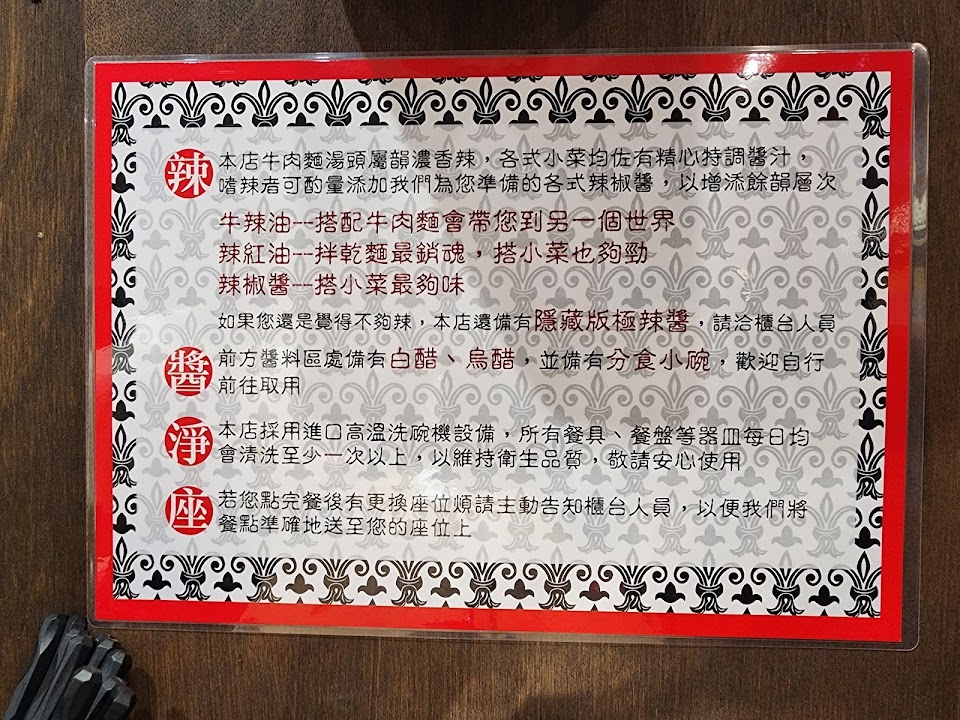 辣 本店牛肉麵湯頭屬韻濃香辣，各式小菜均佐有精心特調醬汁，
嗜辣者可酌量添加我們為您準備的各式辣椒醬，以增添餘韻層次
牛辣油---搭配牛肉麵會帶您到另一個世界
辣紅油---拌乾麵最銷魂，搭小菜也夠勁
辣椒醬---搭小菜最夠味
如果您還是覺得不夠辣，本店還備有隱藏版極辣醬，請洽櫃台人員
醬 前方醬料區處備有白醋、烏醋，並備有分食小碗，歡迎自行
前往取用
淨 本店採用進口高溫洗碗機設備，所有餐具、餐盤等器皿每日均
會清洗至少一次以上，以維持衛生品質，敬請安心使用
座 若您點完餐後有更換座位煩請主動告知櫃台人員，以便我們將
餐點準確地送至您的座位上